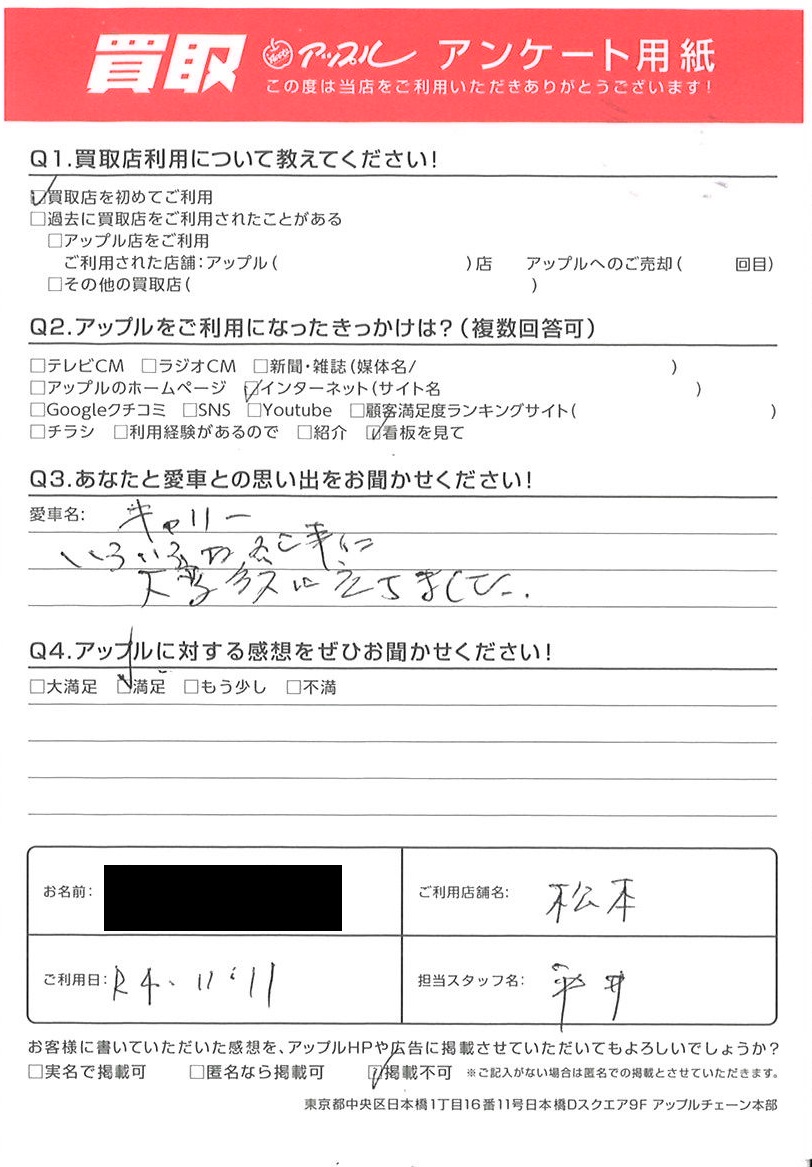 買取 アップル アンケート用紙
この度は当店をご利用いただきありがとうございます!
Q1.買取店利用について教えてください!
☑買取店を初めてご利用
□過去に買取店をご利用されたことがある
□アップル店をご利用
ご利用された店舗:アップル( )店 アップルへのご売却( 回目)
□その他の買取店( )
Q2.アップルをご利用になったきっかけは?(複数回答可)
□テレビCM □ラジオCM □新聞・雑誌(媒体名/ )
□アップルのホームページ ☑インターネット(サイト名 )
□Googleクチコミ □SNS □Youtube □顧客満足度ランキングサイト( )
□チラシ □利用経験があるので □紹介 ☑看板を見て
Q3.あなたと愛車との思い出をお聞かせください!
愛車名: キャリー
いろいろな
ました.
Q4.アップルに対する感想をぜひお聞かせください!
□大満足 ☑満足 □もう少し □不満
お名前:
ご利用店舗名: 松本
ご利用日: R4.11.11
担当スタッフ名: 平井
お客様に書いていただいた感想を、アップルHPや広告に掲載させていただいてもよろしいでしょうか?
□実名で掲載可 □匿名なら掲載可 ☑掲載不可 ※ご記入がない場合は匿名での掲載とさせていただきます。
東京都中央区日本橋1丁目16番11号日本橋Dスクエア9F アップルチェーン本部